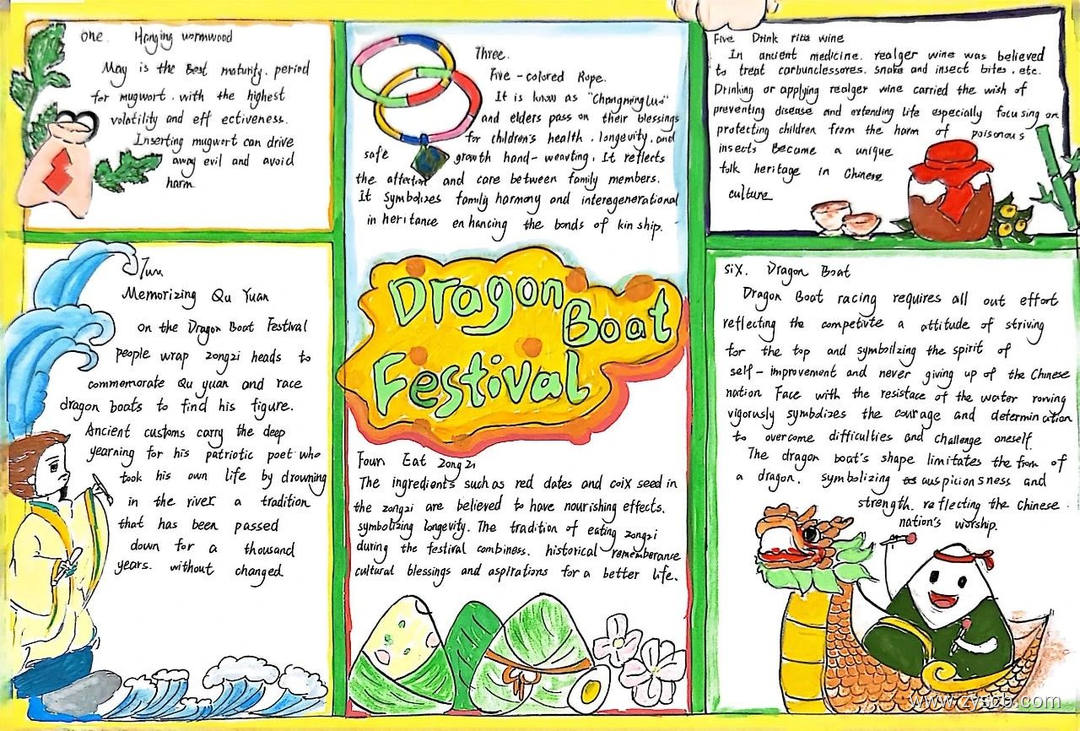 one. Hanging wormwood
May is the Best maturity. period
for mugwort. with the highest
volatility and eff ectiveness.
Inserting mugwort can drive
away evil and avoid
harm.
Memorizing Qu Yuan
on the Dragon Boat Festival
people wrap zongzi heads to
commemorate Qu yuan and race
dragon boats to find his figure.
Ancient customs carry the deep
yearning for his patriotic poet who
took his own life by drowning
in the river a tradition
that has been passed
down for a thousand
years. without changed
Three.
Five-colored Rope.
It is know as "Changminglu"
and elders pass on their blessings
for children's health. longevity. and
safe growth hand-weaving. It reflects
the affection and care between family members.
It Symbolizes family harmony and interegenerational
in heritance enhancing the bonds of kin ship.
Dragon
Boat
Festival
Foun Eat zongzi
The ingredients such as red dates and coix seed in
the zongzi are believed to have nourishing effects.
symbolizing longevity. The tradition of eating zongzi
during the festival combiness. historical rememberance
cultural blessings and aspirations for a better life.
Five Drink rice wine
In ancient medicine. realger wine was believed
to treat carbunclessores. snake and insect bites. etc.
Drinking or applying realger wine carried the wish of
preventing disease and extending life especially focusing on
protecting children from the harm of poisonous
insects Became a unique
folk heritage in Chinese
culture
six. Dragon Boat
Dragon Boat racing requires all out effort
reflecting the competivte a attitude of striving
for the top and symbolizing the spirit of
self-improvement and never giving up of the Chinese
nation Face with the resistace of the water rowing
vigorously symbolizes the courage and determination
to overcome difficulties and challenge oneself.
The dragon boat's shape limitates the from of
a dragon. symbolizing auspiciousness and
strength. reflecting the Chinese
nation's worship.
www.zyszb.com